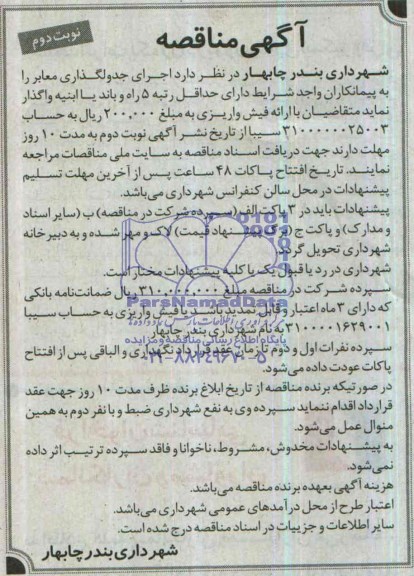 نوبت دوم
آگهی مناقصه
شهرداری بندر چابهار در نظر دارد اجرای جدولگذاری معابر را
به پیمانکاران واجد شرایط دارای حداقل رتبه ۵ راه و باند یا ابنیه واگذار
نماید متقاضیان با ارائه فیش واریزی به مبلغ ۲۰۰,۰۰۰ ریال به حساب
۳۱۰۰۰۰۰۰۲۵۰۰۳ سیبا از تاریخ نشر آگهی نوبت دوم به مدت ۱۰ روز
مهلت دارند جهت دریافت اسناد مناقصه به سایت ملی مناقصات مراجعه
نمایند. تاریخ افتتاح پاکات ۴۸ ساعت پس از آخرین مهلت تسلیم
پیشنهادات در محل سالن کنفرانس شهرداری می‌باشد.
پیشنهادات باید در ۳ پاکت الف (سپرده شرکت در مناقصه) ب (سایر اسناد
و مدارک) و پاکت ج (برگ پیشنهاد قیمت) لاک و مهر شده و به دبیرخانه
شهرداری تحویل گردد.
شهرداری در رد یا قبول یک یا کلیه پیشنهادات مختار است.
سپرده شرکت در مناقصه مبلغ ریال ضمانت‌نامه بانکی
که دارای ۳ ماه اعتبار و قابل تمدید باشد یا فیش واریزی به حساب سیبا
۳۱۰۰۰۰۱۶۲۹۰۰۱ به نام شهرداری بندر چابهار
سپرده نفرات اول و دوم تا زمان عقد قرارداد نگهداری و الباقی پس از افتتاح
پاکات عودت داده می‌شود.
در صورتیکه برنده مناقصه از تاریخ ابلاغ برنده ظرف مدت ۱۰ روز جهت عقد
قرارداد اقدام ننماید سپرده وی به نفع شهرداری ضبط و با نفر دوم به همین
منوال عمل می‌شود.
به پیشنهادات مخدوش، مشروط، ناخوانا و فاقد سپرده ترتیب اثر داده
نمی‌شود.
هزینه آگهی بعهده برنده مناقصه می‌باشد.
اعتبار طرح از محل درآمدهای عمومی شهرداری می‌باشد.
سایر اطلاعات و جزییات در اسناد مناقصه درج شده است.
شهرداری بندر چابهار
ParsNamadData
پایگاه اطلاع رسانی مناقصه و مزایده
۰۲۱-۸۸۳۴۹۶۷۰-۵